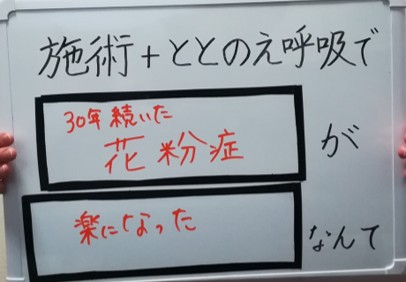 施術+ととのえ呼吸で
30年続いた
花粉症
が
楽になった
なんて